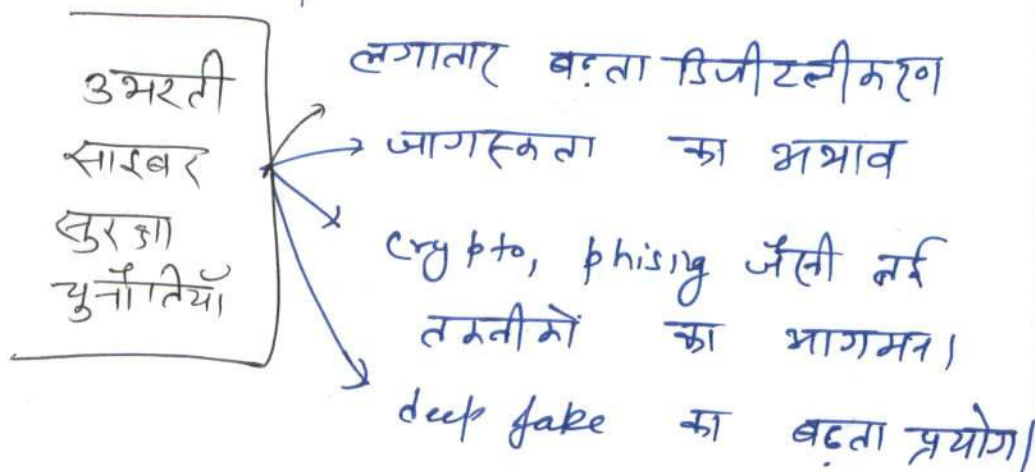 उभरती
साइबर
सुरक्षा
चुनौतियाँ
लगातार बढ़ता डिजीटलीकरण
जागरूकता का अभाव
crypto, phising जैसी नई
तकनीकों का आगमन।
deep fake का बढ़ता प्रयोग।